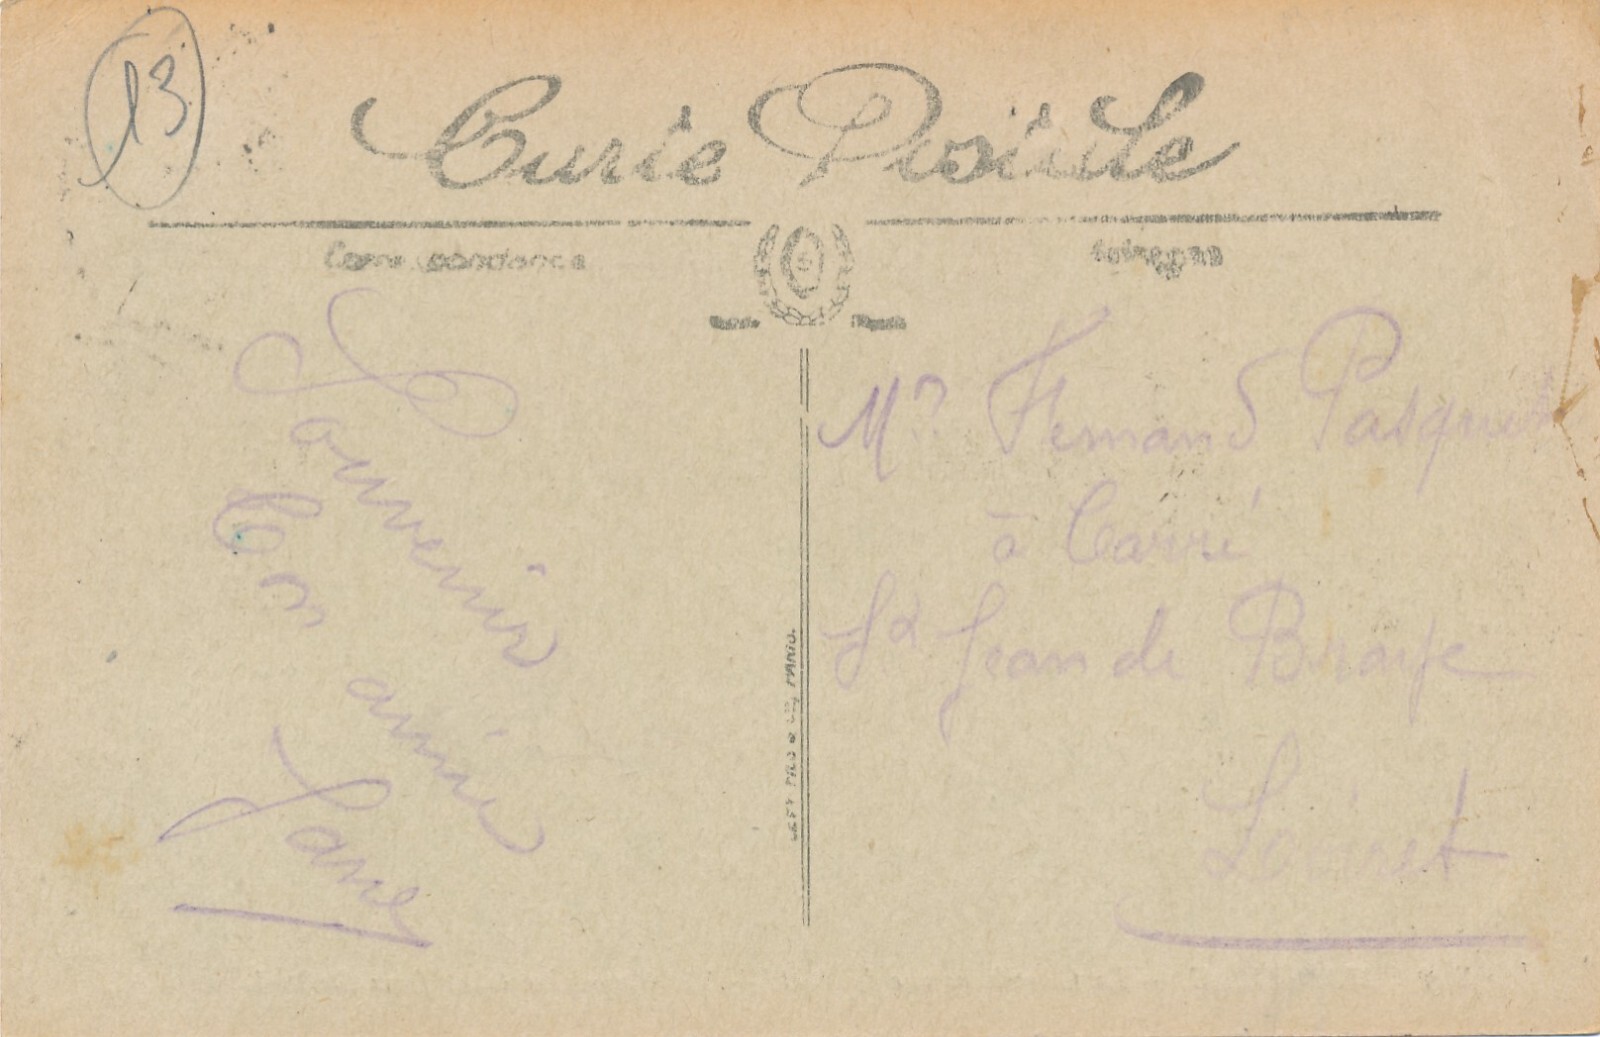 13
Carte Postale
Correspondance
Adresse
Souvenir
Ton amie
Jane
Mr Fernand Pasquet
à Carré
St Jean de Braye
Loiret